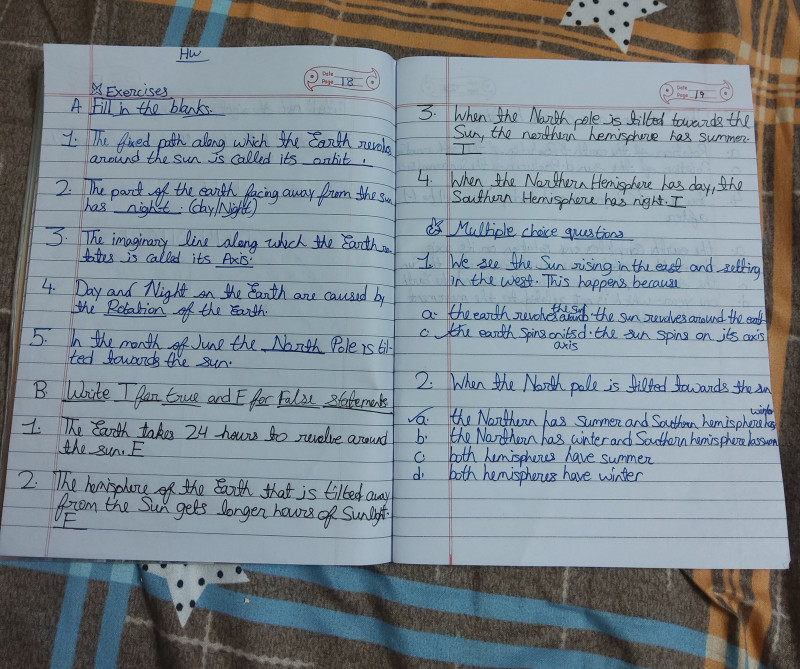 HW
Date
Page 18
Exercises
A Fill in the blanks.
1. The fixed path along which the Earth revolves
around the sun is called its orbit.
2. The part of the earth facing away from the sun
has night. (day/Night)
3. The imaginary line along which the Earth ro-
tates is called its Axis.
4. Day and Night on the Earth are caused by
the Rotation of the Earth.
5. In the month of June the North Pole is til-
ted towards the sun.
B. Write T for true and F for False statements
1. The Earth takes 24 hours to revolve around
the sun. F
2. The hemisphere of the Earth that is tilted away
from the Sun gets longer hours of Sunlight.
F
Date
Page 19
3. When the North pole is tilted towards the
Sun, the northern hemisphere has summer.
T
4. When the Northern Hemisphere has day, the
Southern Hemisphere has night. T
Multiple choice questions
1. We see the Sun rising in the east and setting
in the west. This happens because
a. the earth revolves around the sun the sun revolves around the earth
c. the earth spins on its axis d. the sun spins on its axis
2. When the North pole is tilted towards the sun
a. the Northern has summer and Southern hemisphere has winter
b. the Northern has winter and Southern hemisphere has summ
c. both hemispheres have summer
d. both hemispheres have winter